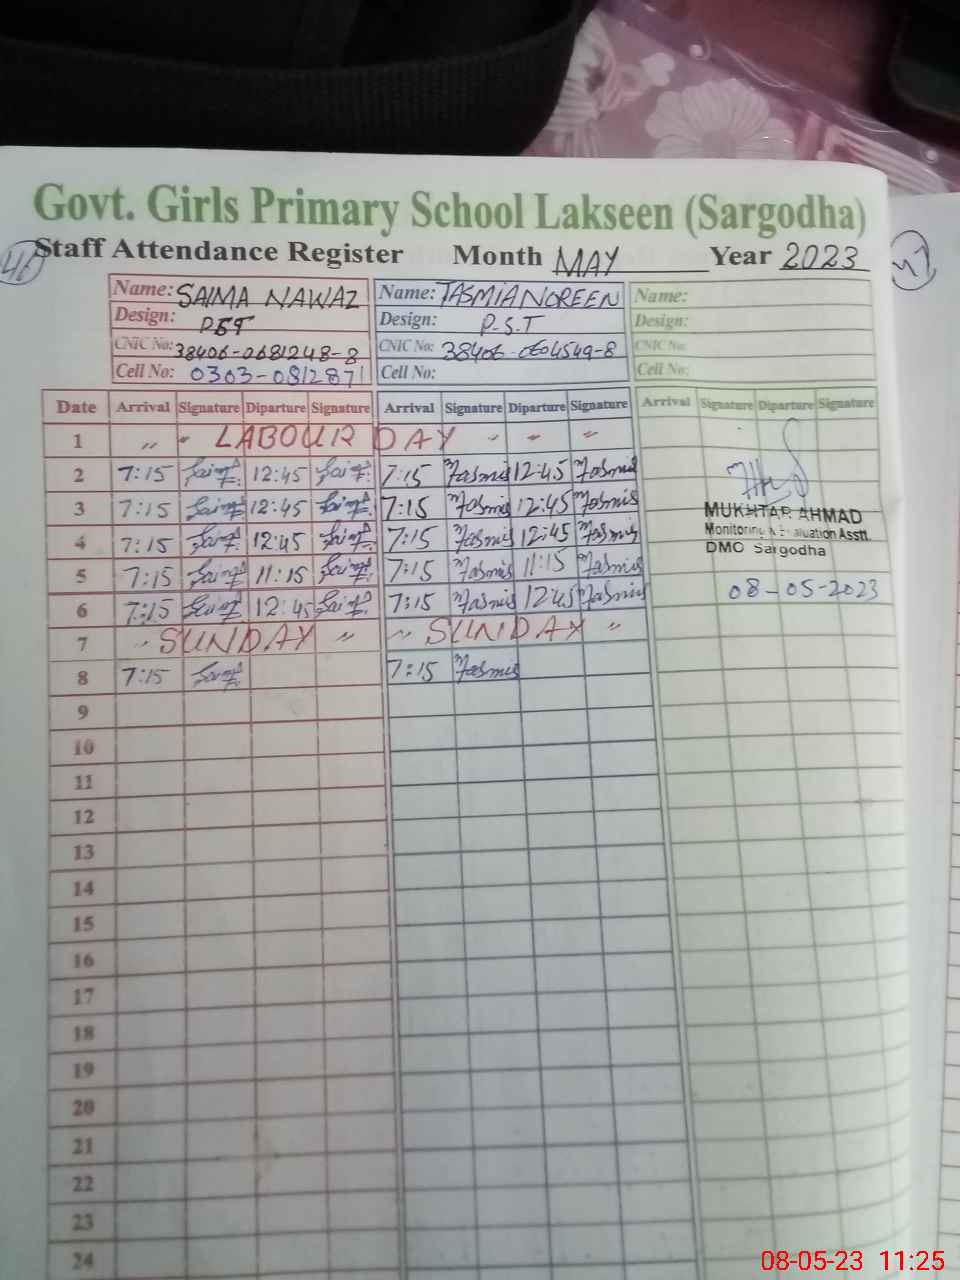 Govt. Girls Primary School Lakseen (Sargodha)
46 Staff Attendance Register Month MAY Year 2023 47
Name: SAIMA NAWAZ Name: TASMIA NOREEN Name:
Design: PST Design: P.S.T Design:
CNIC No: 38406-0681248-8 CNIC No: 38406-0604549-8 CNIC No:
Cell No: 0303-0812871 Cell No: Cell No:
Date Arrival Signature Diparture Signature Arrival Signature Diparture Signature Arrival Signature Diparture Signature
1 " " LABOUR DAY " " "
2 7:15 Saima 12:45 Saima 7:15 Tasmia 12:45 Tasmia
3 7:15 Saima 12:45 Saima 7:15 Tasmia 12:45 Tasmia
MUKHTAR AHMAD
4 7:15 Saima 12:45 Saima 7:15 Tasmia 12:45 Tasmia
Monitoring & Evaluation Asstt.
DMO Sargodha
5 7:15 Saima 11:15 Saima 7:15 Tasmia 11:15 Tasmia
08-05-2023
6 7:15 Saima 12:45 Saima 7:15 Tasmia 12:45 Tasmia
7 " SUNDAY " " SUNDAY "
8 7:15 Saima 7:15 Tasmia
9
10
11
12
13
14
15
16
17
18
19
20
21
22
23
24
08-05-23 11:25